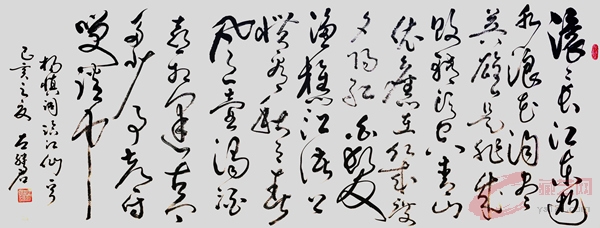 滚滚长江东逝
水浪花淘尽
英雄是非成
败转头空青山
依旧在几度
夕阳红白发
渔樵江渚上
惯看秋月春
风一壶浊酒
喜相逢古今
多少事都付
笑谈中
杨慎词临江仙
己亥之夏